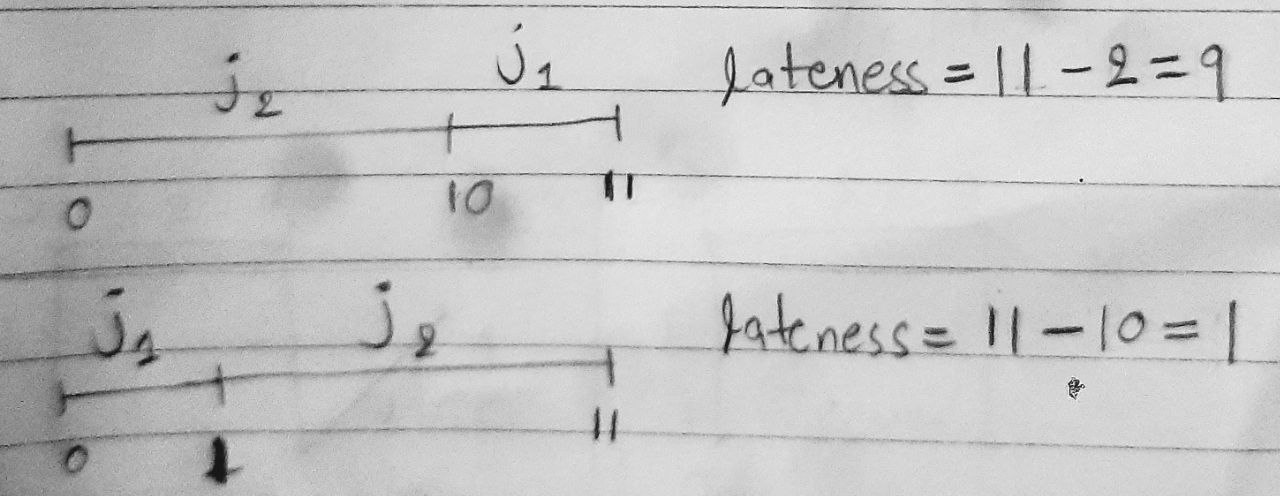 j2 j1 lateness = 11 - 2 = 9
0 10 11
j1 j2 lateness = 11 - 10 = 1
0 1 11